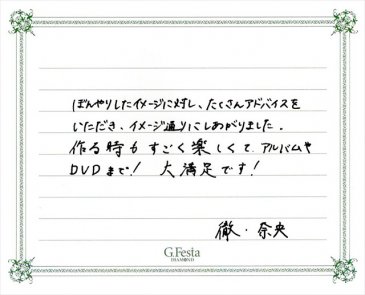 ぼんやりしたイメージに対し、たくさんアドバイスを
いただき、イメージ通りにしあがりました。
作る時もすごく楽しくて、アルバムや
DVDまで! 大満足です!
徹・奈央
G.Festa
DIAMOND